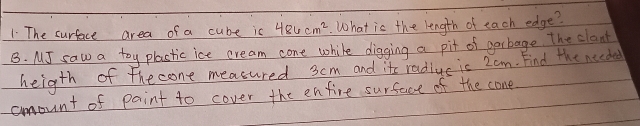 1. The surface area of a cube is 484cm². What is the length of each edge?
B. MJ saw a toy plastic ice cream cone while digging a pit of garbage. The slant
heigth of the cone measured 3cm and its radius is 2cm. Find the needed
amount of paint to cover the entire surface of the cone.